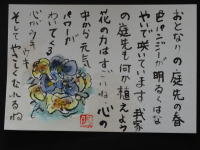 おとなりの庭先の春
色パンジーが明るくはな
やいで咲いています 我家
の庭先も何か植えよう
花の力はすごいね 心の
中から元気
パワーが
わいてくる
心がウキウキ
そして やさしくなれるね